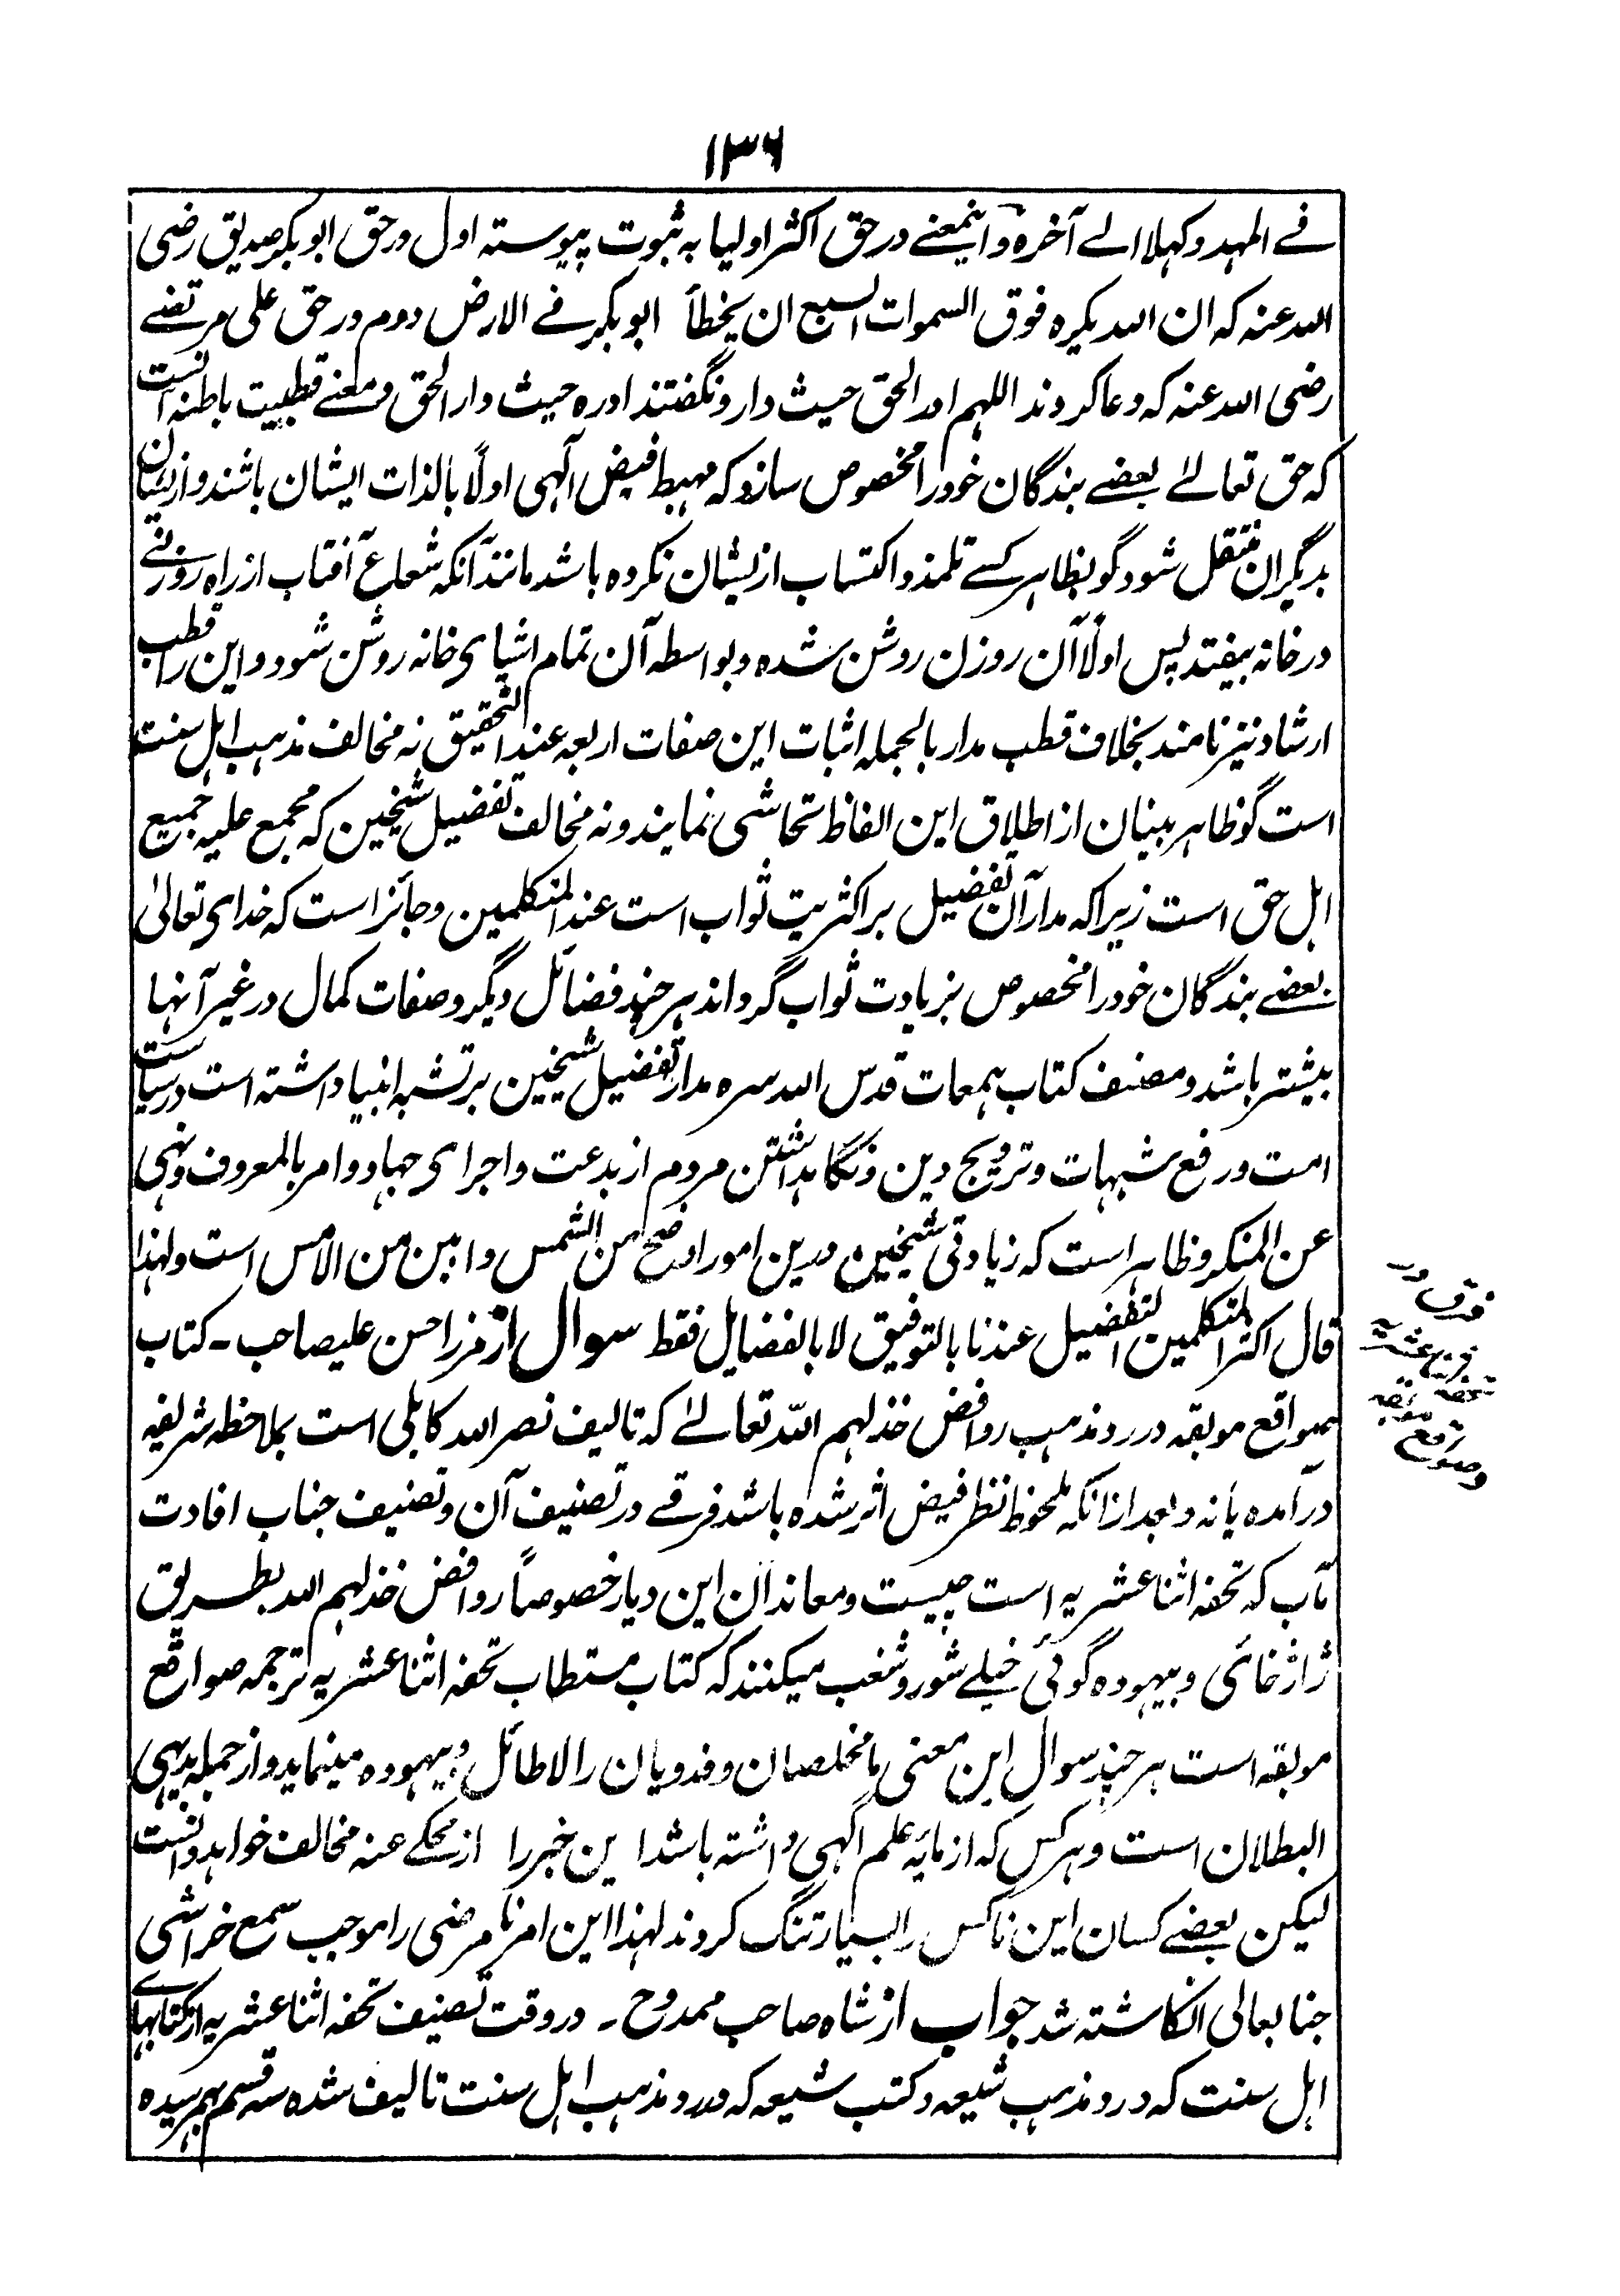 ۱۳۶
فے المہد وکہلا الے آخرہ واینمعنے درحق اکثر اولیا بہ ثبوت پیوستہ اول درحق ابوبکر صدیق رضی
اللہ عنہ کہ ان اللہ یکرہ فوق السموات السبع ان یخطأ ابوبکر فے الارض دوم درحق علی مرتضے
رضی اللہ عنہ کہ دعا کردند اللہم ادر الحق حیث دار ونگفتند ادرہ حیث دار الحق ومعنے قطبیت باطنہ آنست
کہ حق تعالےٰ بعضے بندگان خود را مخصوص سازد کہ مہبط فیض الٓہی اولاً بالذات ایشان باشند و ازیشان
بدیگران منتقل شود گو بظاہر کسے تلمذ و اکتساب ازیشان نکردہ باشد مانند آنکہ شعاع آفتاب از راہ روزنے
درخانہ بیفتد پس اولاً آن روزن روشن شدہ وبواسطہ آن تمام اشیای خانہ روشن شود و این را قطب
ارشاد نیز نامند بخلاف قطب مدار بالجملہ اثبات این صفات اربعہ عند التحقیق نہ مخالف مذہب اہل سنت
است گو ظاہر بینان از اطلاق این الفاظ تحاشی نمایند ونہ مخالف تفضیل شیخین کہ مجمع علیہ جمیع
اہل حق است زیراکہ مدار آن تفضیل بر اکثریت ثواب است عند المتکلمین وجائز است کہ خدای تعالیٰ
بعضے بندگان خود را مخصوص بزیادت ثواب گرداند ہرچند فضائل دیگر وصفات کمال در غیر آنہا
بیشتر باشد ومصنف کتاب ہمعات قدس اللہ سرہ مدار تفضیل شیخین بر تشبہ انبیا داشتہ است در سیاست
امت ورفع شبہات وترویج دین ونگاہداشتن مردم از بدعت واجرای جہاد وامر بالمعروف ونہی
عن المنکر وظاہر است کہ زیادتی شیخین درین امور اوضح من الشمس وابین من الامس است ولہذا
قال اکثر المتکلمین التفضیل عندنا بالتوفیق لا بالفضایل فقط سوال از مرزا حسن علیصاحب ۔ کتاب
صواقع موبقہ در رد مذہب روافض خذلہم اللّہ تعالےٰ کہ تالیف نصر اللہ کابلی است بملاحظہ شریفہ
درآمدہ یا نہ وبعد ازانکہ ملحوظ نظر فیض اثر شدہ باشد فرقے در تصنیف آن وتصنیف جناب افادت
مآب کہ تحفہ اثنا عشریہ است چیست ومعاندان این دیار خصوصاً روافض خذلہم اللہ بطریق
ژاژ خائی وبیہودہ گوئی خیلے شور وشغب میکنند کہ کتاب مستطاب تحفہ اثنا عشریہ ترجمہ صواقع
موبقہ است ہرچند سوال این معنی ما مخلصان وفدویان را لاطائل وبیہودہ مینماید و از جملہ بدیہی
البطلان است وہر کس کہ از مایہ علم آگہی داشتہ باشد این خبر را از محکے عنہ مخالف خواہد دانست
لیکن بعضے کسان این ناکس را بسیار تنگ کردند لہذا این امر نامرضی را موجب سمع خراشی
جنابعالی انگاشتہ شد جواب از شاہ صاحب ممدوح ۔ در وقت تصنیف تحفہ اثنا عشریہ از کتابہاے
اہل سنت کہ در رد مذہب شیعہ وکتب شیعہ کہ در رد مذہب اہل سنت تالیف شدہ سہ قسم بہم رسیدہ
فرق در